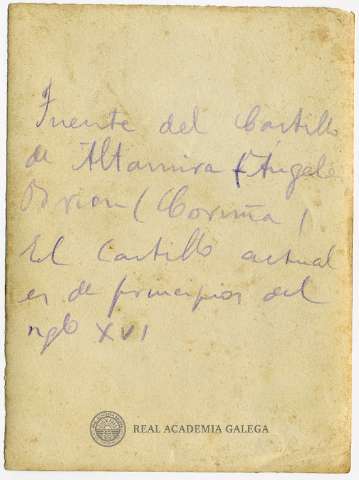 Fuente del Castillo
de Altamira (Angeles
Brion (Coruña)
El Castillo actual
es de principios del
siglo XVI
REAL ACADEMIA GALEGA